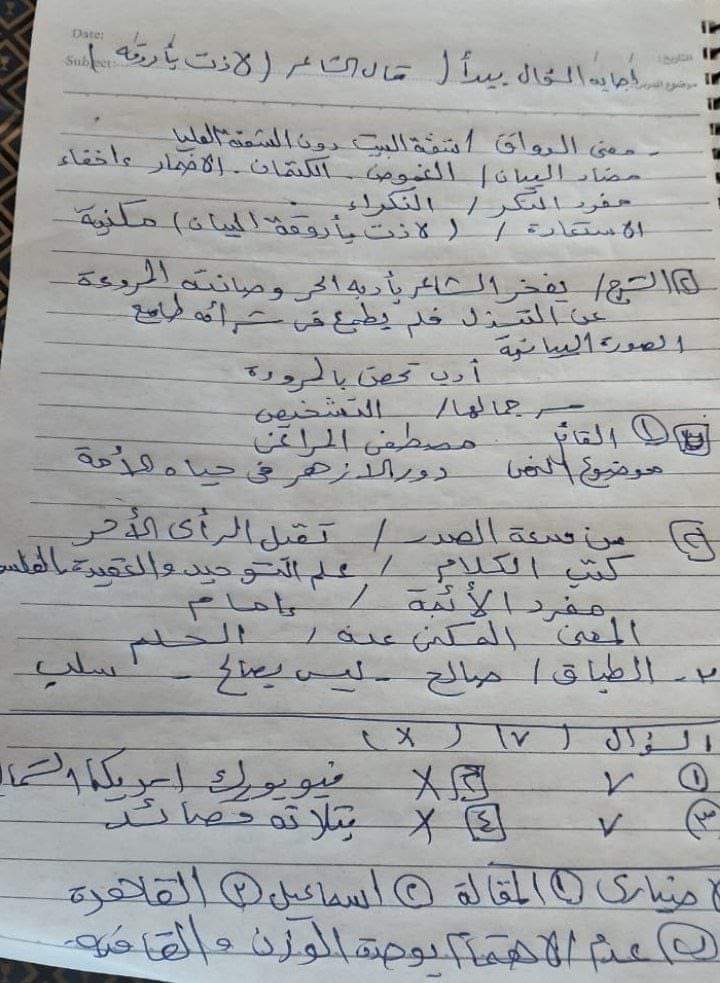 Date:
Subject:
التاريخ:
إجابة السؤال يبدأ ( قال الشاعر ( لاذت بأروقة )
- معنى الرواق / شقة البيت دون الشقة العليا
مضاد البيان / الغموض - الكتمان - الإضمار وإخفاء
مفرد النكر / النكراء
الاستعارة / ( لاذت بأروقة البيان ) مكنية
الشرح / يفخر الشاعر بأدبه الحر وصانته المروءة
عن التبذل فلم يطمع في شرائه طامع
الصورة البيانية
أدب تحصن بالمروءة
سر جمالها / التشخيص
١ القائل مصطفى المراغى
موضوع النص دور الازهر فى حياه الأمة
من سعة الصدر / تقبل الرأى الأخر
كتب الكلام / علم التوحيد والعقيدة
مفرد الأئمة / إمام
المعنى المكنى عنه / الحلم
٢- الطباق / صالح - ليس بصالح - سلب
السؤال (√) (X)
١ √ ٢ X نيويورك امريكا
٣ √ ٤ X بثلاثة قصائد
١ المقالة ٢ اسماعيل ٣ القاهرة
عدم الاهتمام بوحدة الوزن والقافية